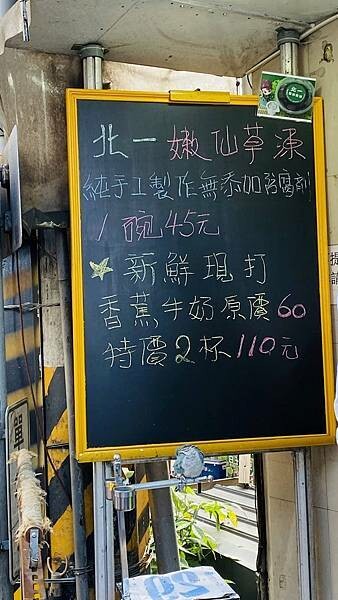 北一嫩仙草凍
純手工製作無添加防腐劑
1碗45元
新鮮現打
香蕉牛奶原價60
特價2杯110元
北一
單